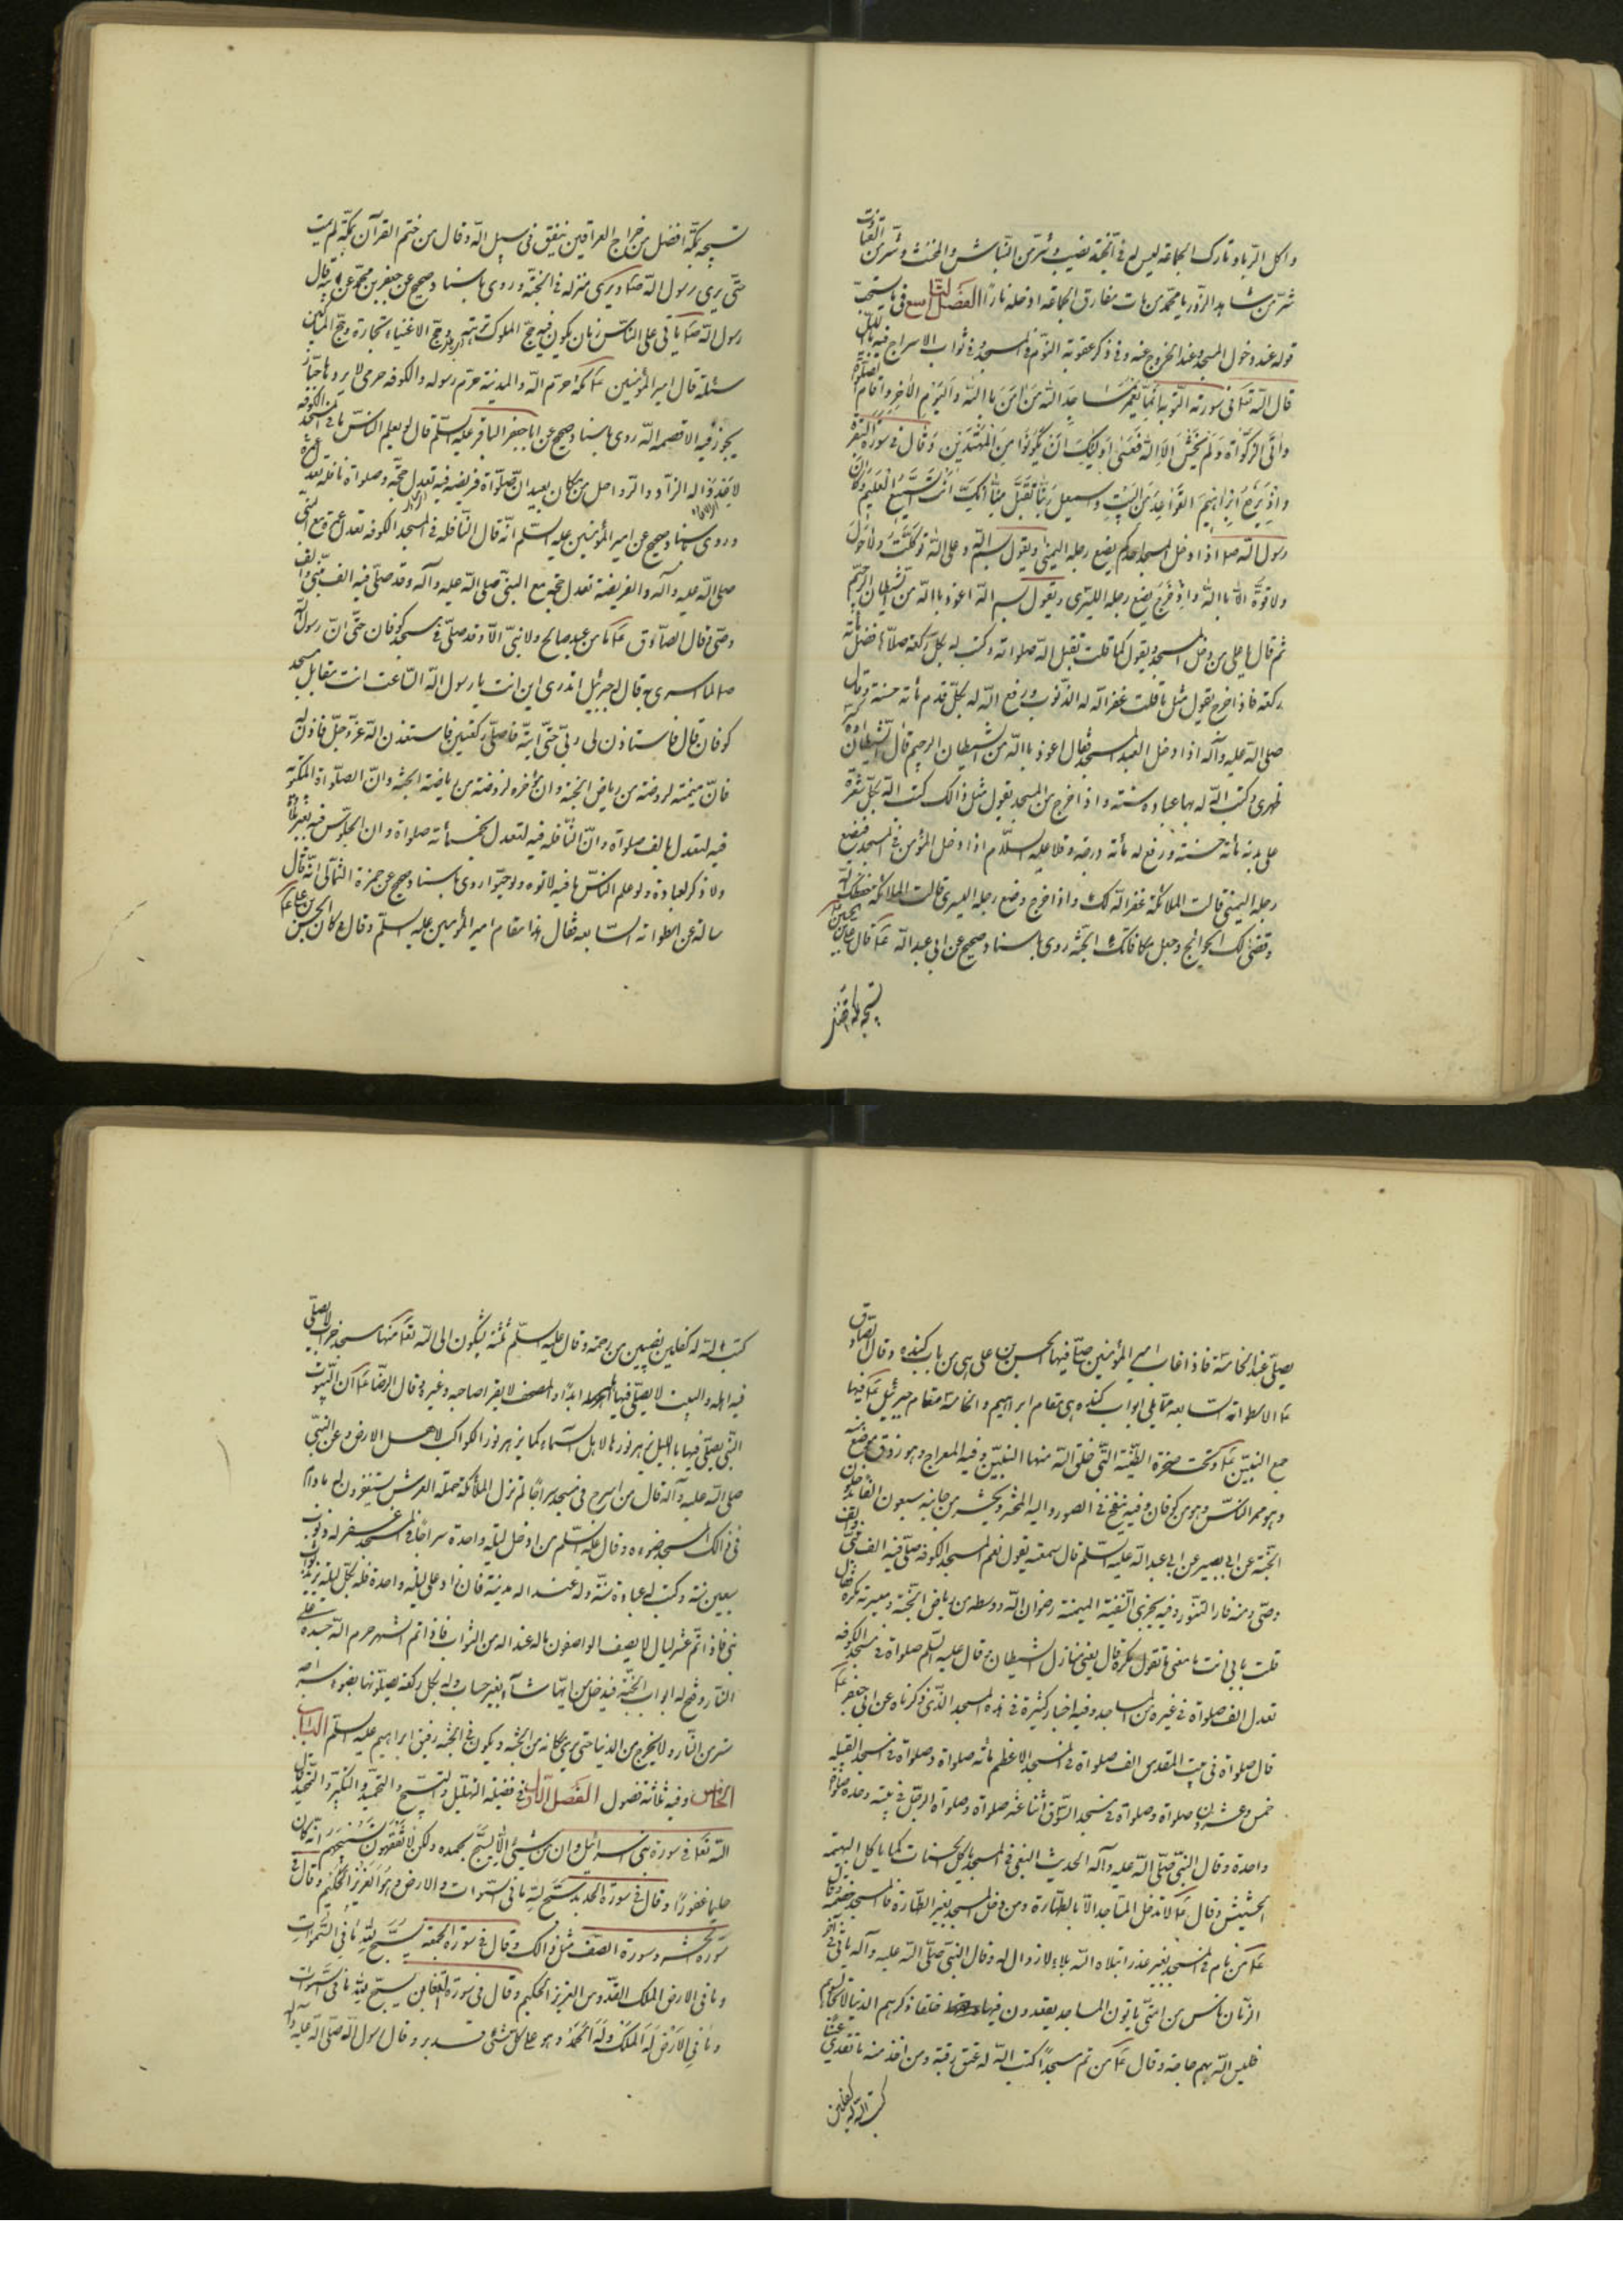 واكل الربا وتارك الجماعة ليس له في الجنة نصيب وشر من النباش والمخنث وشر من القتات
شر من شاهد الزور يا محمد من مات مفارق الجماعة ادخله نارا الفصل التاسع في ما يستحب
قوله عند دخول المسجد وعند الخروج عنه وفي ذكر عقوبة النوم في المسجد وفي ثواب الاسراج فيه بالليل
قال الله تعا في سورة التوبة انما يعمر مساجد الله من آمن بالله واليوم الآخر واقام الصلوة
واتى الزكوة ولم يخش الا الله فعسى اولئك ان يكونوا من المهتدين وقال في سورة البقرة
واذ يرفع ابراهيم القواعد من البيت واسمعيل ربنا تقبل منا انك انت السميع العليم وكان
رسول الله صلا اذا دخل المسجد احدكم يضع رجله اليمنى ويقول بسم الله وعلى الله توكلت ولا حول
ولا قوة الا بالله واذا خرج يضع رجله اليسرى ويقول بسم الله اعوذ بالله من الشيطان الرجيم
ثم قال يا علي من دخل المسجد ويقول كما قلت تقبل الله صلواته وكتب له بكل ركعة صلاها فضل مائة
ركعة فاذا خرج يقول مثل ما قلت غفر الله له الذنوب ورفع الله له بكل قدم مائة حسنة وقال
صلى الله عليه وآله اذا دخل العبد المسجد فقال اعوذ بالله من الشيطان الرجيم قال الشيطان كسر
ظهري وكتب الله له بها عبادة سنة واذا خرج من المسجد يقول مثل ذالك كتب الله بكل شعرة
على بدنه مائة حسنة ورفع له مائة درجة وقال عليه السلام اذا دخل المؤمن في المسجد فيضع
رجله اليمنى قالت الملائكة غفر الله لك واذا خرج ووضع رجله اليسرى قالت الملائكة حفظك الله
وقضى لك الحوائج وجعل مكافاتك الجنة روى باسناد صحيح عن ابي عبد الله ع قال علي بن الحسين
تسبيحة بمكة افضل
تسبيحة بمكة افضل من خراج العراقين ينفق في سبيل الله وقال من ختم القرآن بمكة لم يمت
حتى يرى رسول الله صلا ويرى منزله في الجنة وروى باسناد صحيح عن جعفر بن محمد عن ابيه قال
رسول الله صلا ياتي على الناس زمان يكون فيه حج الملوك نزهة وحج الاغنياء تجارة وحج المساكين
مسئلة قال امير المؤمنين ع مكة حرم الله والمدينة حرم رسوله والكوفة حرمي لا يردها جبار
يجور فيه الا قصمه الله روى باسناد صحيح عن ابا جعفر الباقر عليه السلم قال لو يعلم الناس ما في مسجد الكوفة
لاعدوا له الزاد والرواحل من مكان بعيد ان صلوة فريضة فيه تعدل حجة وصلواة نافلة تعدل عمرة
وروى باسناد صحيح عن امير المؤمنين عليه السلم انه قال النافلة في المسجد الكوفة تعدل عمرة مع النبي
صلى الله عليه وآله والفريضة تعدل حجة مع النبي صلى الله عليه وآله وقد صلى فيه الف نبي والف
وصي قال الصادق ع ما من عبد صالح ولا نبي الا وقد صلى في مسجد كوفان حتى ان رسول الله
صلا لما اسري به قال له جبرئيل اتدري اين انت يا رسول الله الساعت انت مقابل مسجد
كوفان قال فاستاذن لي ربي حتى آتيه فاصلي ركعتين فاستاذن الله عز وجل فاذن له
فان ميمنته لروضة من رياض الجنة وان مؤخره لروضة من رياض الجنة وان الصلواة المكتوبة
فيه لتعدل بالف صلواة وان النافلة فيه لتعدل بخمسمائة صلواة وان الجلوس فيه بغير تلاوة
ولا ذكر لعبادة ولو علم الناس ما فيه لاتوه ولو حبوا روى باسناد صحيح عن حمزة الثمالي انه قال
ساله عن اسطوانة السابعة فقال هذا مقام امير المؤمنين عليه السلم وقال وكان الحسن بن علي ع
يصلي عند الخامسة فاذا غاب امير المؤمنين صلى فيها الحسن بن علي هي من باب كندة وقال الصادق
ع الاسطوانة السابعة مما يلي ابواب كندة هي مقام ابراهيم والخامسة مقام جبرئيل ع فيها
جمع النبيين ع وتحت صخرة الطينة التي خلق الله منها النبيين وفيه المعراج وهو فاروق موضع منه
وهو ممر الناس وهو من كوفان وفيه ينفخ في الصور واليه المحشر ويحشر من جانبه سبعون الفا يدخلون
الجنة عن ابي بصير عن ابي عبد الله عليه السلم قال سمعته يقول نعم المسجد الكوفة صلى فيه الف نبي والف
وصي ومنه فار التنور وفيه يجرى السفينة الميمنة رضوان الله ووسطه من رياض الجنة وميسرته مكر قال
قلت بابي انت ما معنى ما تقول مكر قال يعني منازل الشيطان وقال عليه السلم صلواة في مسجد الكوفة
تعدل الف صلواة في غيره من المساجد وفيه اخبار كثيرة في هذه المسجد الذي ذكرناه عن ابي جعفر ع
قال صلواة في بيت المقدس الف صلواة في المسجد الاعظم مائة صلواة وصلواة في مسجد القبيلة
خمس وعشرون صلواة وصلواة في مسجد السوق اثنا عشر صلواة وصلواة الرجل في بيته وحده صلواة
واحدة وقال النبي صلى الله عليه وآله الحديث البغي في المسجد ياكل الحسنات كما ياكل البهيمة
الحشيش وقال ع لا تدخل المساجد الا بالطهارة ومن دخل المسجد بغير الطهارة فالمسجد خصمه وقال
ع من نام في المسجد بغير عذر ابتلاه الله بلاء لا زوال له وقال النبي صلى الله عليه وآله ياتي في آخر
الزمان ناس من امتي ياتون المساجد يقعدون فيها حلقا ذكرهم الدنيا لا تجالسوهم
فليس الله بهم حاجة وقال ع من قم مسجدا كتب الله له عتق رقبة ومن اخذ منه ما تقذي عينا
كتب الله له كفلين
كتب الله له كفلين نصيبين من رحمته وقال عليه السلم ثلثة يشكون الى الله تعا منها مسجد خراب لا يصلي
فيه اهله والبيت لا يصلي فيها ابدا والمصحف لا يقرا صاحبه وغيره وقال الرضا ع ان البيوت
التي يصلي فيها بالليل يزهر نورها لاهل السماء كما يزهر نور الكواكب لاهل الارض وعن النبي
صلى الله عليه وآله قال من اسرج في مسجد سراجا لم تزل الملائكة وحملة العرش يستغفرون له ما دام
في ذالك المسجد ضوءه وقال عليه السلم من ادخل ليلة واحدة سراجا في المسجد غفر له ذنوب
سبعين سنة وكتب له عبادة سنة وله عند الله مدينة فان زاد على ليلة واحدة فله بكل ليلة يزيد ثواب
نبي فاذا اتم عشر ليال لا يصف الواصفون ما له عند الله من الثواب فاذا اتم الشهر حرم الله جسده على
النار وفتح له ابواب الجنة فيدخل من ايها شاء بغير حساب وله بكل ركعة يصلونها بضوء سراجه
ستر من النار ولا يخرج من الدنيا حتى يرى مكانه من الجنة ويكون في الجنة رفيق ابراهيم عليه السلم الباب
الخامس وفيه ثلثة فصول الفصل الاول في فضيلة التهليل والتسبيح والتحميد والتكبير والتمجيد قال
الله تعا في سورة بني اسرائيل وان من شيئ الا يسبح بحمده ولكن لا تفقهون تسبيحهم انه كان
حليما غفورا وقال في سورة الحديد سبح لله ما في السموات والارض وهو العزيز الحكيم وقال في
سورة الحشر وسورة الصف مثل ذالك وقال في سورة الجمعة يسبح لله ما في السموات
وما في الارض الملك القدوس العزيز الحكيم وقال في سورة التغابن يسبح لله ما في السموات
وما في الارض له الملك وله الحمد وهو على كل شئ قدير وقال رسول الله صلى الله عليه وآله